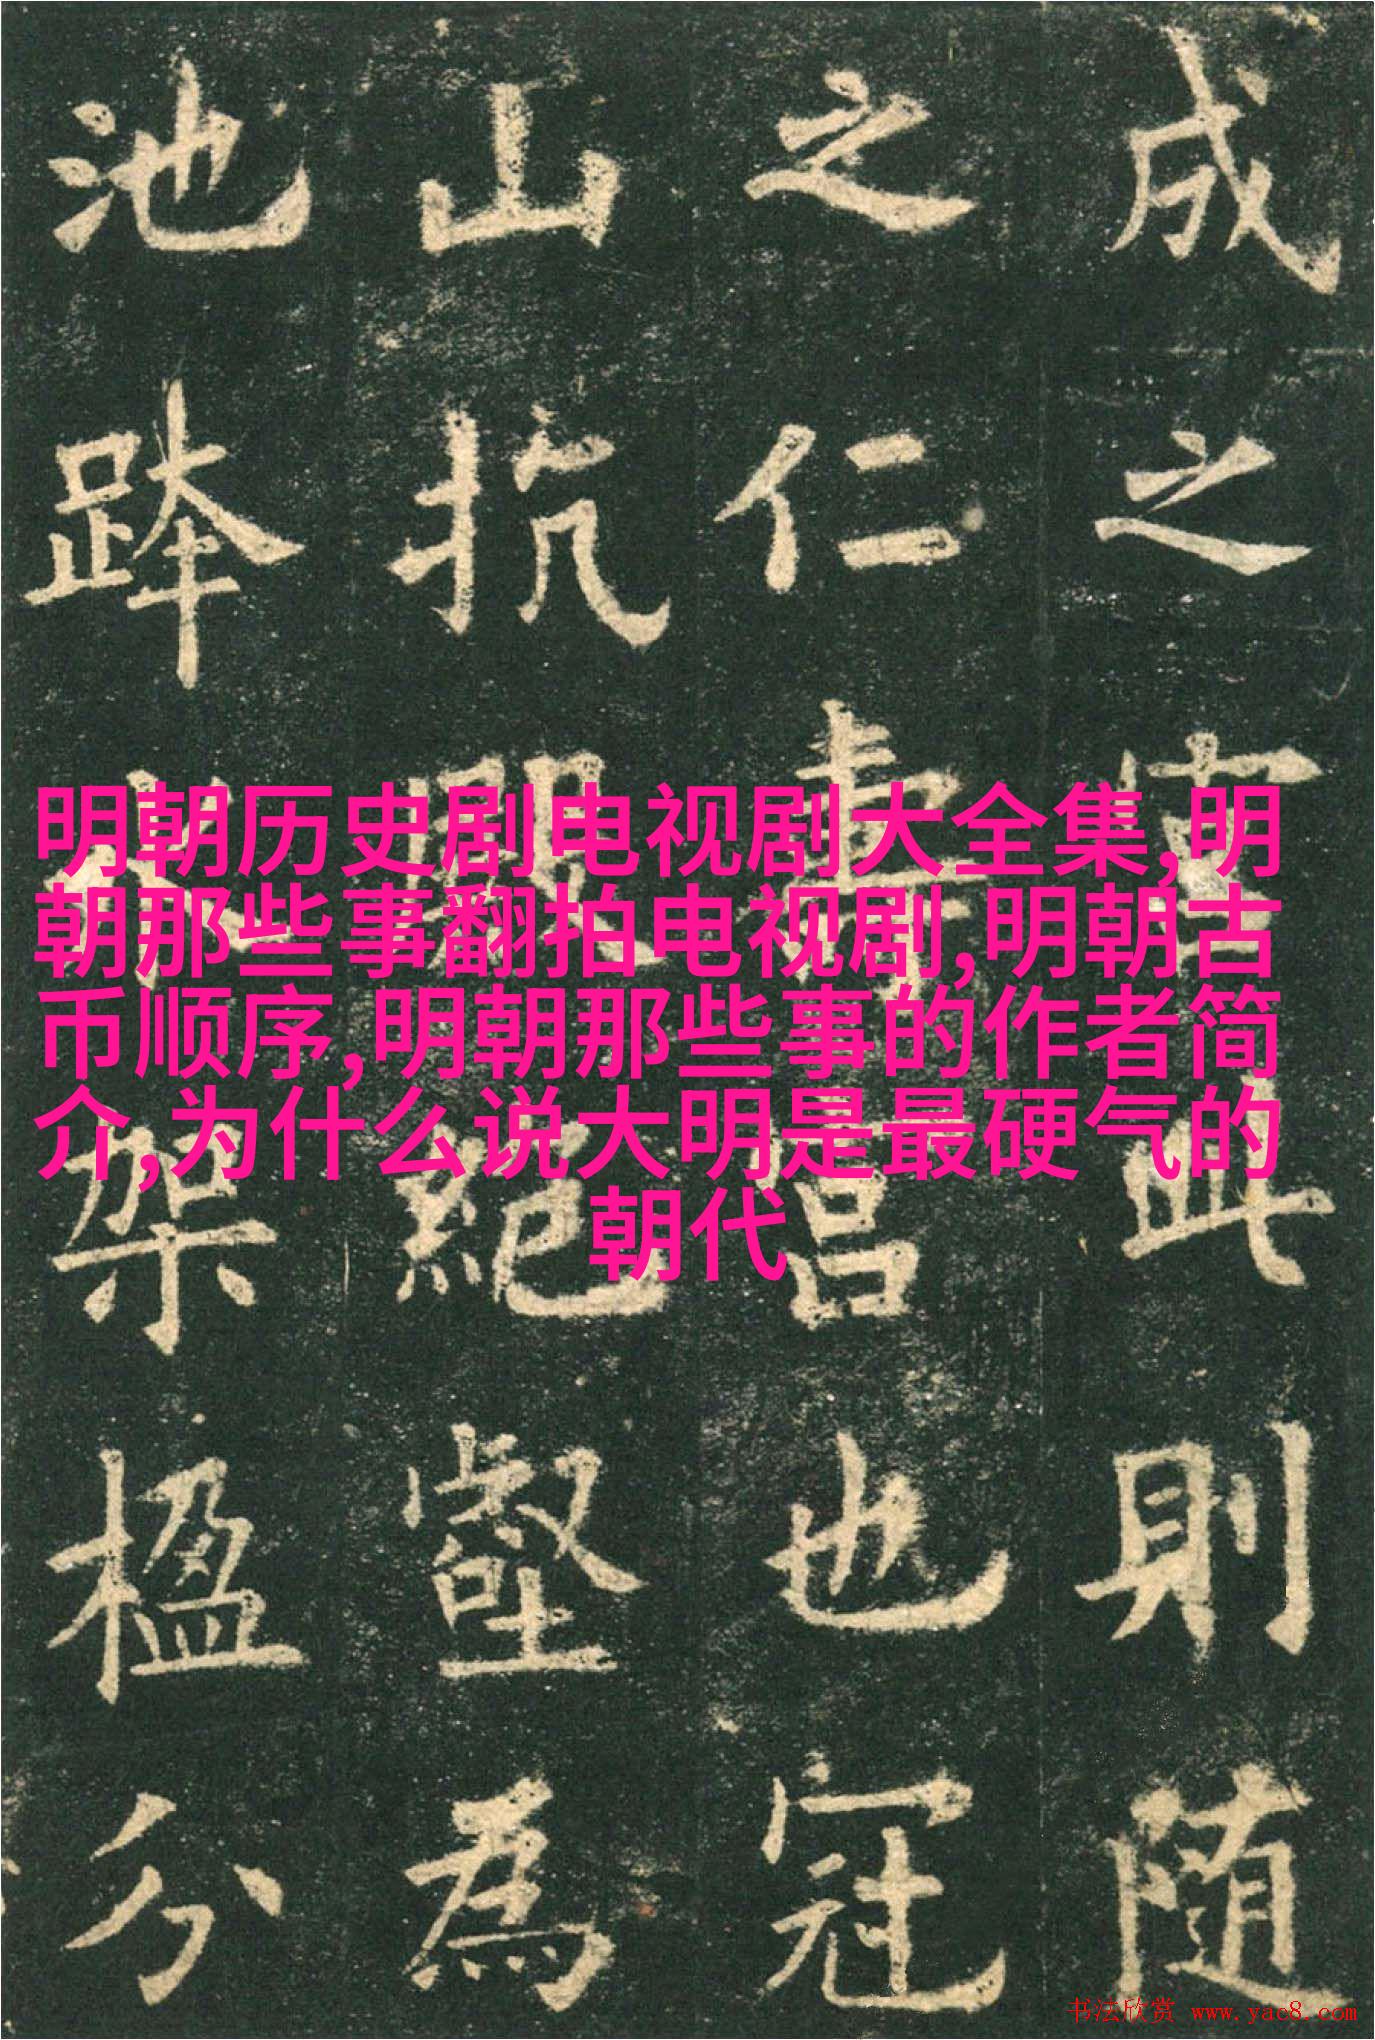 成之宮此則隨
之仁壽宮也冠
山抗殿絕壑為
池跨水架楹分
明朝历史剧电视剧大全集,明
朝那些事翻拍电视剧,明朝古
币顺序,明朝那些事的作者简
介,为什么说大明是最硬气的
朝代
书法欣赏 www.yac8.com